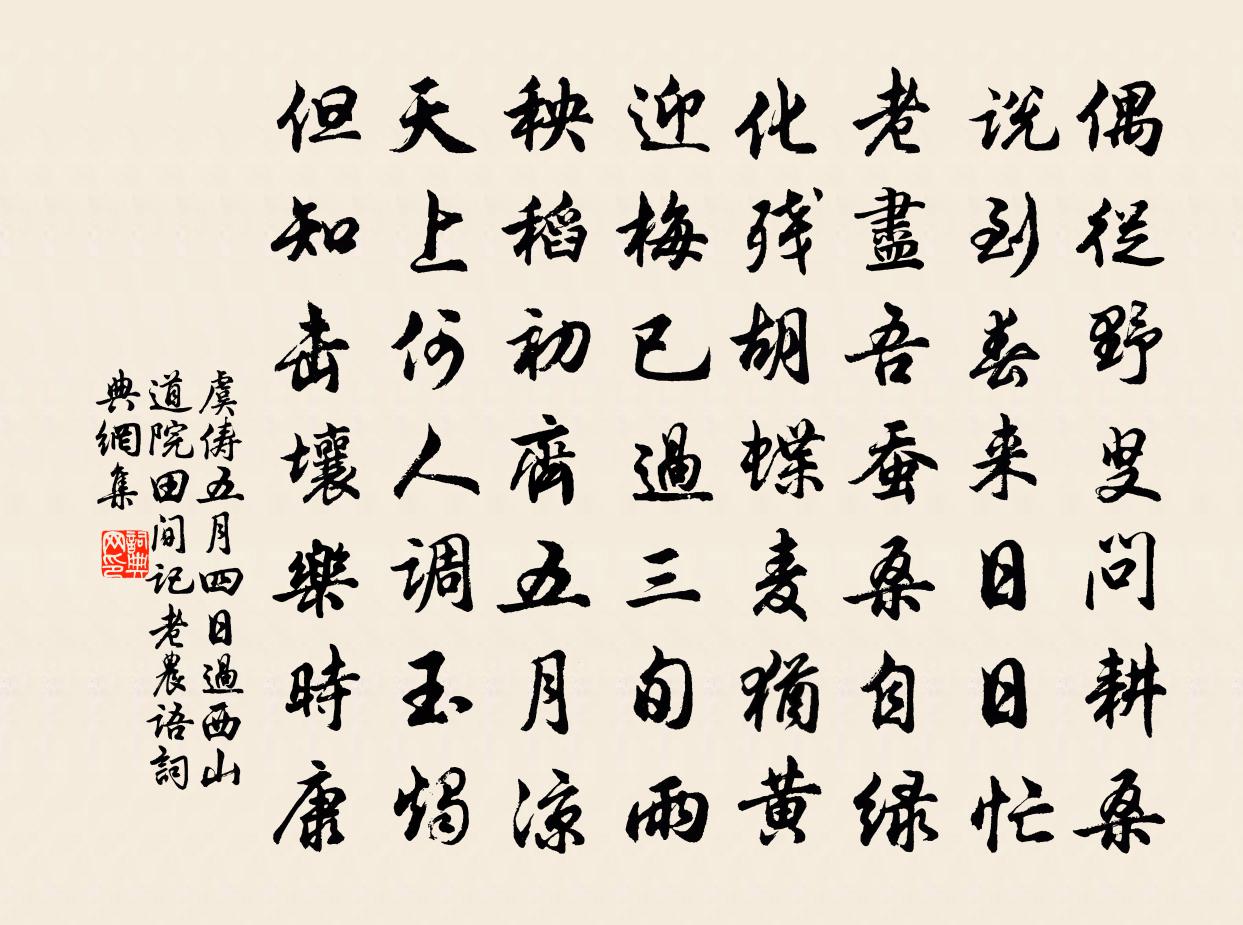 偶從野叟問耕桑
説到春来日日忙
老盡吾蚕桑自緑
化残胡蝶麦猶黄
迎梅已過三旬雨
秧稻初齊五月凉
天上何人调玉燭
但知击壤樂時康
虞儔五月四日過西山
道院田间记老農语詞
典網集
詞典
网印